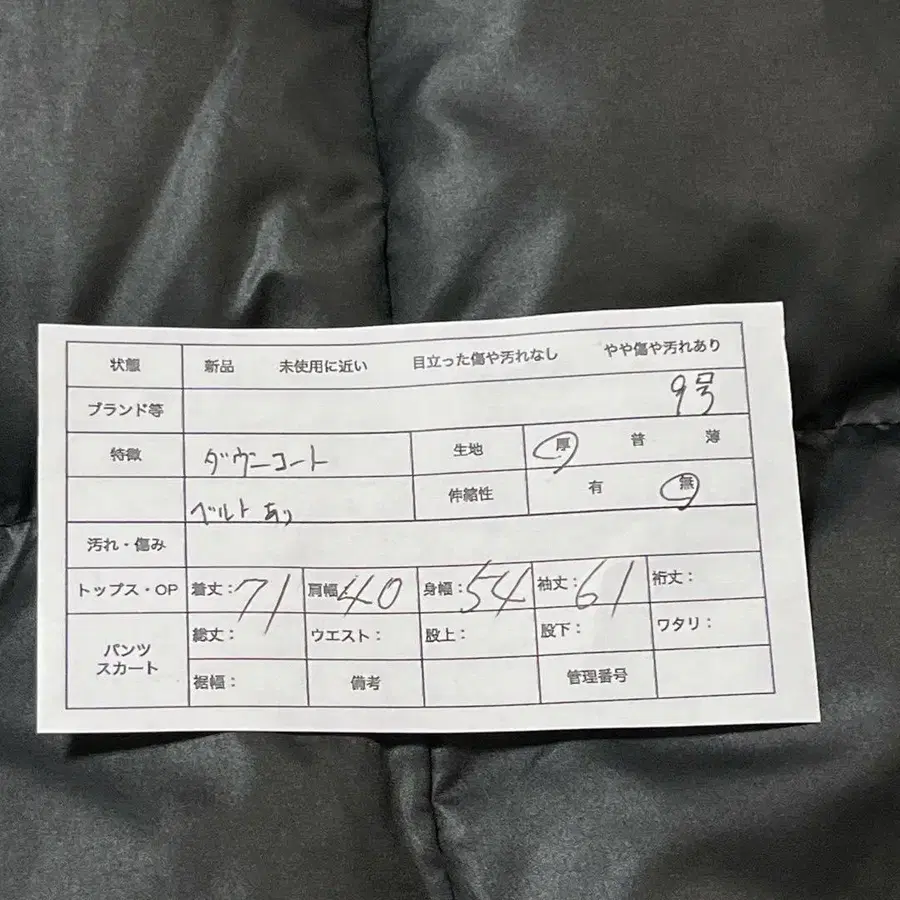 状態 新品 未使用に近い 目立った傷や汚れなし やや傷や汚れあり
ブランド等 9号
特徴 ダウンコート 生地 厚 普 薄
ベルトあり 伸縮性 有 無
汚れ・傷み
トップス・OP 着丈:71 肩幅:40 身幅:54 袖丈:61 裄丈:
パンツ スカート 総丈: ウエスト: 股上: 股下: ワタリ:
裾幅: 備考 管理番号